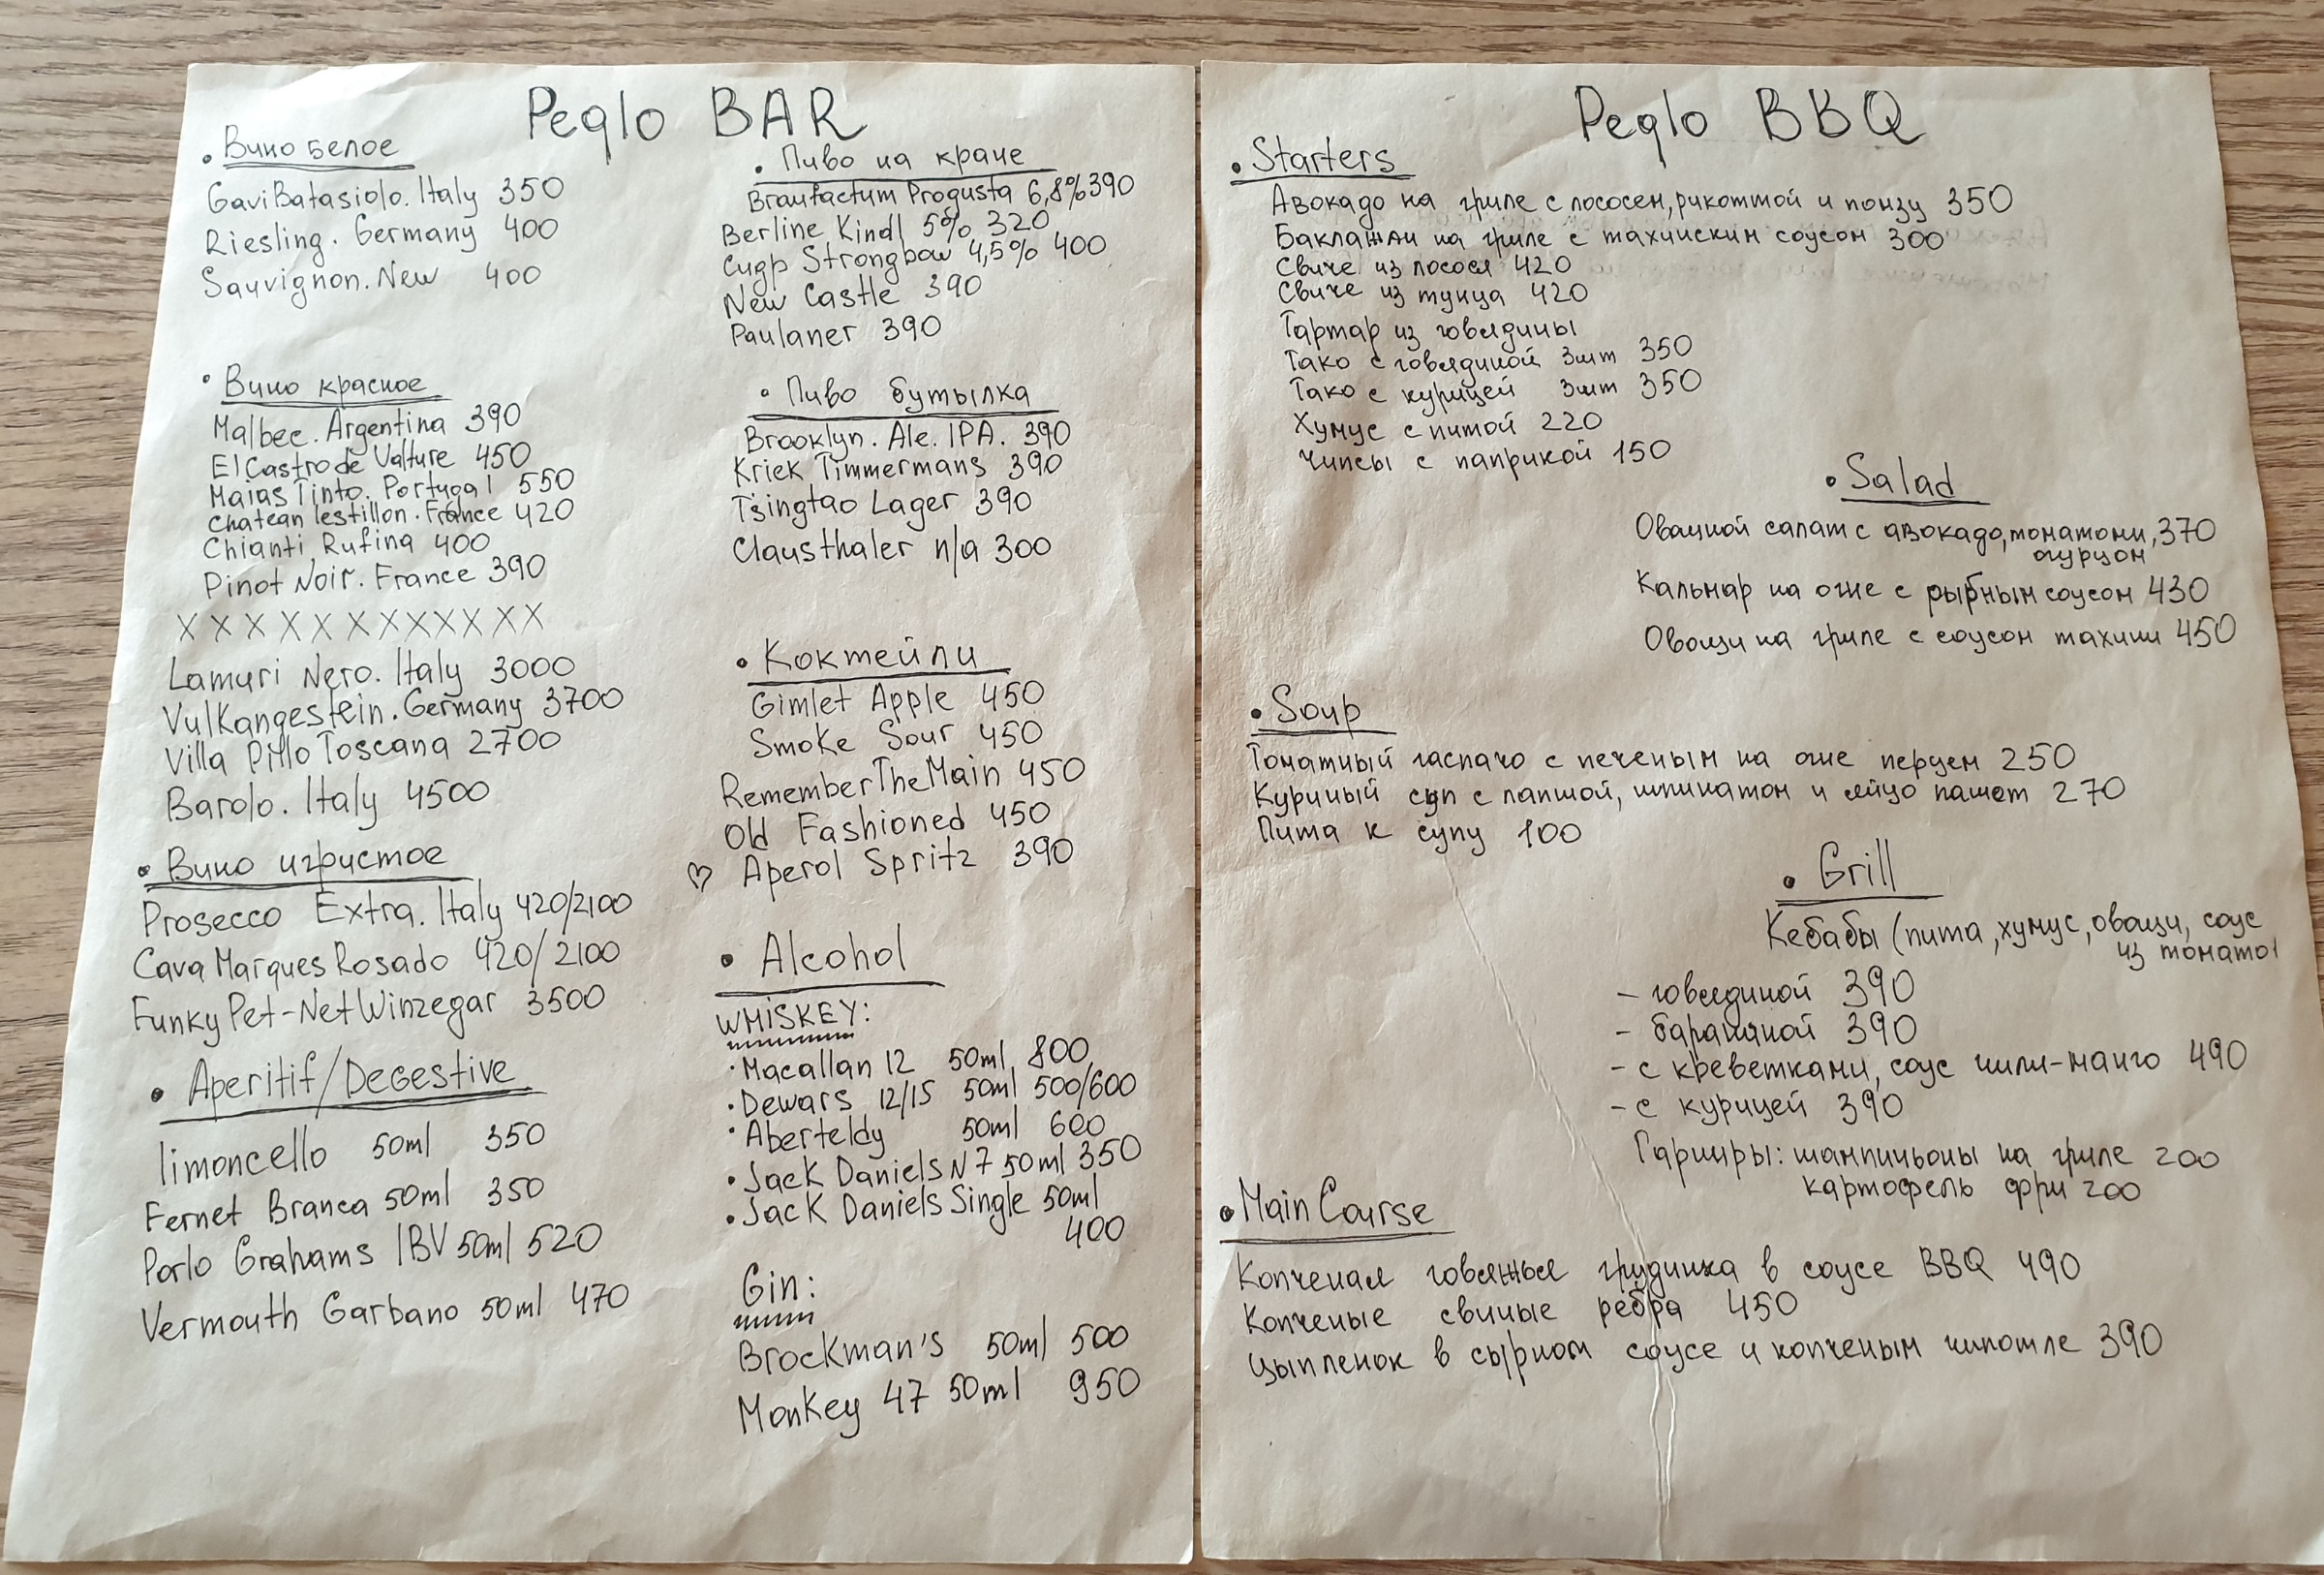 Peqlo BAR
• Вино белое
Gavi Batasiolo. Italy 350
Riesling. Germany 400
Sauvignon. New 400
• Вино красное
Malbec. Argentina 390
El Castro de Valture 450
Maias Tinto. Portugal 550
Chatean lestillon. France 420
Chianti Rufina 400
Pinot Noir. France 390
X X X X X X X X X X X X
Lamuri Nero. Italy 3000
Vulkangestein. Germany 3700
Villa Pillo Toscana 2700
Barolo. Italy 4500
• Вино игристое
Prosecco Extra. Italy 420/2100
Cava Marques Rosado 420/2100
Funky Pet-Net Winzegar 3500
• Aperitif/Degestive
limoncello 50ml 350
Fernet Branca 50ml 350
Porlo Grahams LBV 50ml 520
Vermouth Garbano 50ml 470
• Пиво на кране
Braufactum Progusta 6,8% 390
Berline Kindl 5% 320
Сидр Strongbow 4,5% 400
New Castle 390
Paulaner 390
• Пиво бутылка
Brooklyn. Ale. IPA. 390
Kriek Timmermans 390
Tsingtao Lager 390
Clausthaler n/a 300
• Коктейли
Gimlet Apple 450
Smoke Sour 450
Remember The Main 450
Old Fashioned 450
♡ Aperol Spritz 390
• Alcohol
WHISKEY:
• Macallan 12 50ml 800
• Dewars 12/15 50ml 500/600
• Aberteldy 50ml 600
• Jack Daniels N7 50ml 350
• Jack Daniels Single 50ml
400
Gin:
Brockman's 50ml 500
Monkey 47 50ml 950
Peqlo BBQ
• Starters
Авокадо на гриле с лососем, рикоттой и понзу 350
Баклажан на гриле с тахинским соусом 300
Свиче из лосося 420
Свиче из тунца 420
Тартар из говядины
Тако с говядиной 3шт 350
Тако с курицей 3шт 350
Хумус с питой 220
Чипсы с паприкой 150
• Salad
Овощной салат с авокадо, томатами, 370
огурцом
Кальмар на огне с рыбным соусом 430
Овощи на гриле с соусом тахини 450
• Soup
Томатный гаспачо с печеным на огне перцем 250
Куриный суп с лапшой, шпинатом и яйцо пашот 270
Пита к супу 100
• Grill
Кебабы (пита, хумус, овощи, соус
из томато
- говядиной 390
- бараниной 390
- с креветками, соус чили-манго 490
- с курицей 390
Гарниры: шампиньоны на гриле 200
картофель фри 200
• Main Course
Копченая говяжья грудинка в соусе BBQ 490
Копченые свиные ребра 450
Цыпленок в сырном соусе и копченым чипотле 390